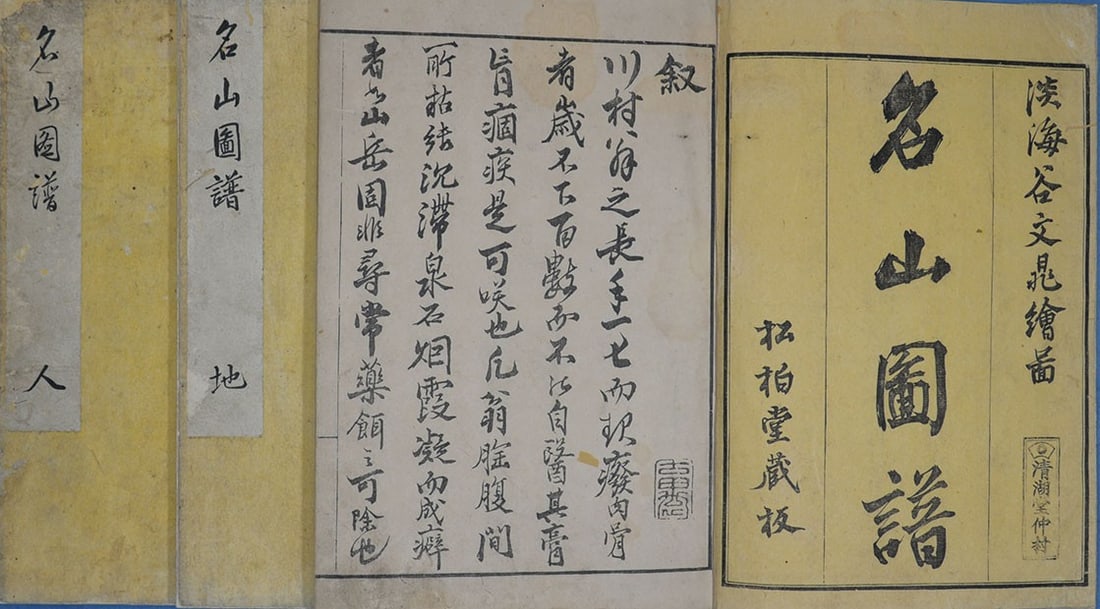 淡海谷文晁繪啚
名山圖譜
松柏堂藏板
清湖堂仲村
叙
川村翁之長手一匕而起癈肉骨
者歲不下百數而不能自醫其膏
肓痼疾是可咲也凡翁胵腹間
所枯結沉滯泉石烟霞凝而成癖
者山岳固非尋常藥餌之可除也
名山圖譜
地
名山图譜
人